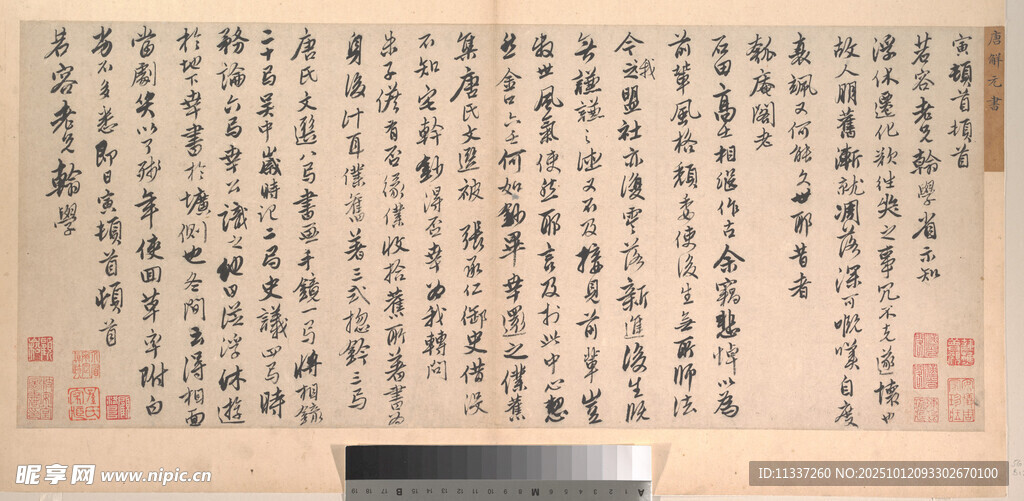 唐解元書
寅頓首頓首
若容老兄翰學省示知
浮休遷化欲往哭之事冗不克遂懷也
故人朋舊漸就凋落深可嘅嘆自度
衰颯又何能久世耶昔者
瓠庵閣老
石田高士相繼作古余竊悲悼以為
前輩風格頹委使後生無所師法
今之我盟社亦復零落新進後生既
無謙謙之迹又不及接見前輩豈
叔世風氣使然耶言及於此中心怒
然金口六壬何如鈔畢幸還之僕舊
集唐氏文選被 張承仁御史借沒
不知宅幹鈔得否幸為我轉問
朱子儋有否緣僕收拾舊所著書為
身後計耳僕舊著三式揔鈐三局
唐氏文選八局書畫手鏡一局將相錄
二十局吳中歲時記二局史議四局時
務論六局幸公識之他日從浮休遊
於地下幸書於壙側也冬間云得相面
當劇笑以了殘年使回草率附白
尚不多悉即日寅頓首頓首
若容老兄翰學
昵享网 www.nipic.cn
ID:11337260 NO:20251012093302670100